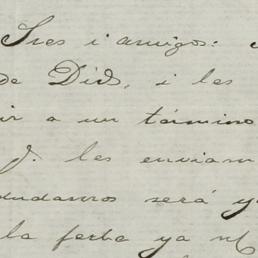 Sres i amigos:
de Dios, i les
ir a un término
J. les enviam
dudamos será y
la fecha ya